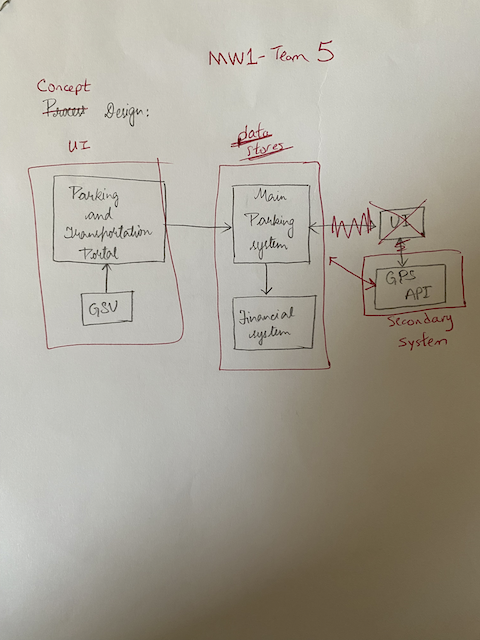 MW1-Team 5
Concept
Process Design:
UI
data
stores
Parking
and
Transportation
Portal
GSV
Main
Parking
system
Financial
system
UI
GPS
API
Secondary
system